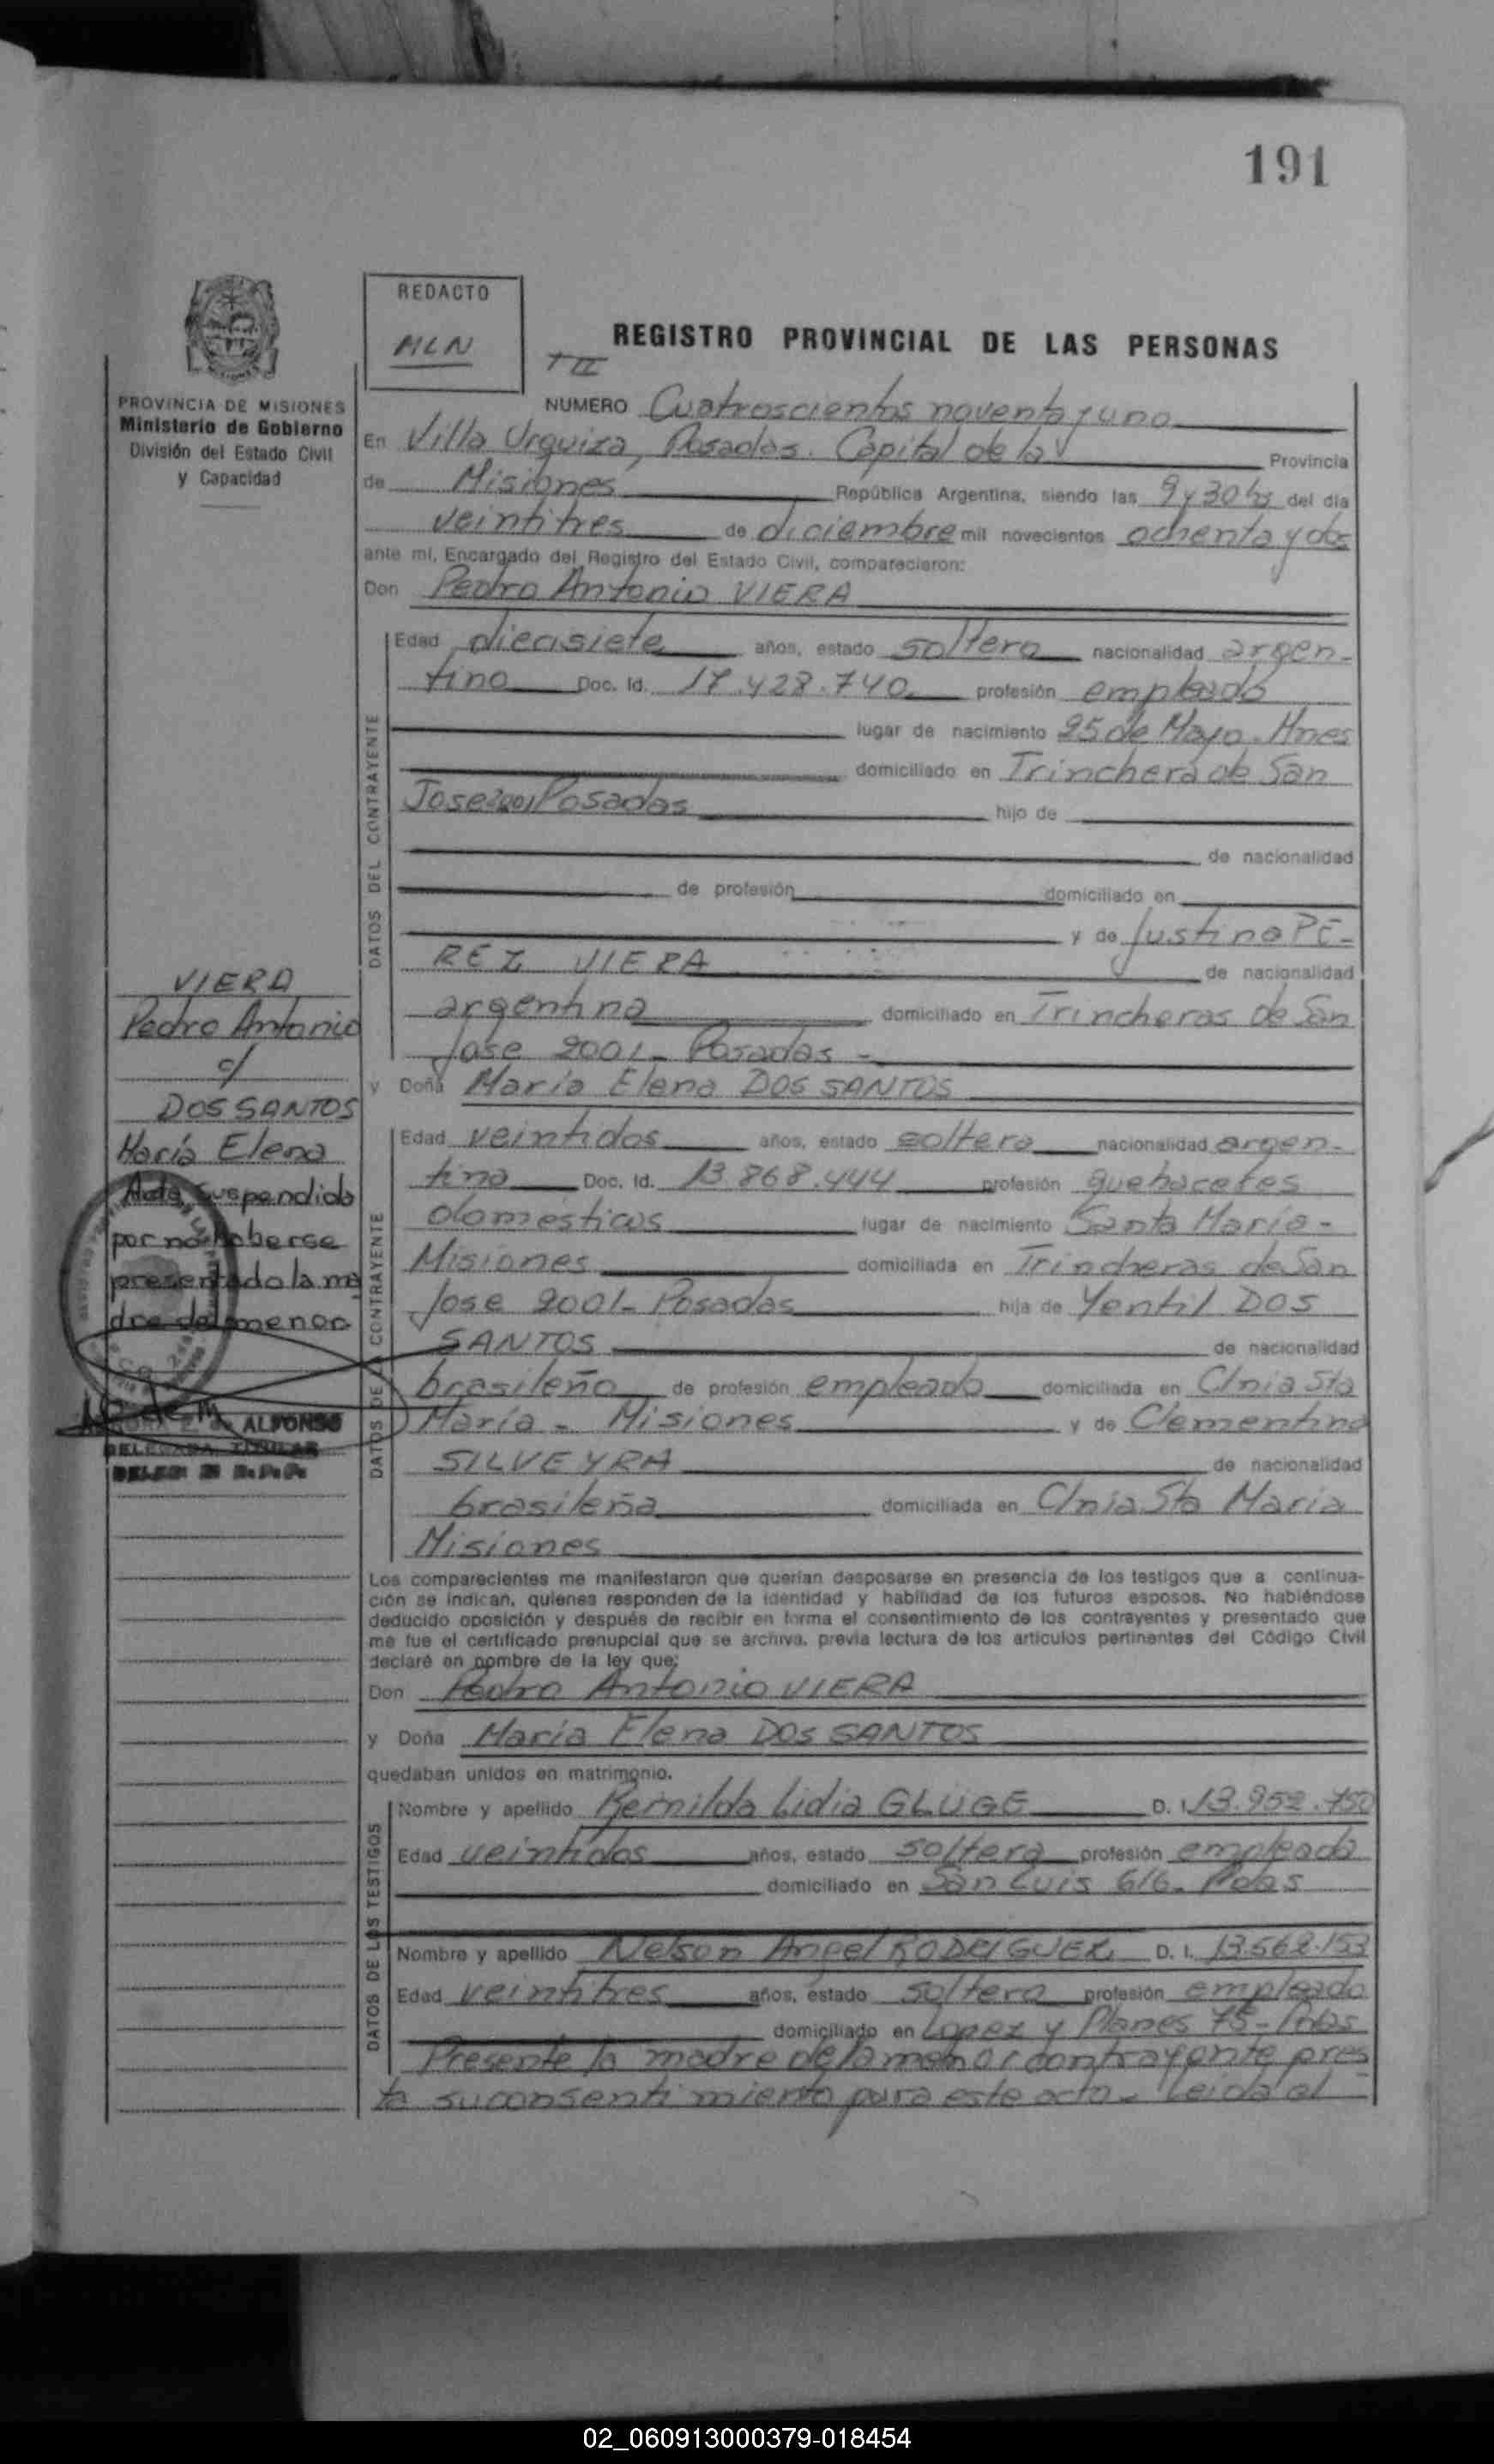 191
REDACTO
MLN
T II
REGISTRO PROVINCIAL DE LAS PERSONAS
PROVINCIA DE MISIONES
Ministerio de Gobierno
División del Estado Civil
y Capacidad
NUMERO Cuatroscientos noventa y uno
En Villa Urquiza, Posadas. Capital de la Provincia
de Misiones República Argentina, siendo las 9 y 30 hs del día
veintitres de diciembre mil novecientos ochenta y dos
ante mí, Encargado del Registro del Estado Civil, comparecieron:
Don Pedro Antonio VIERA
DATOS DEL CONTRAYENTE
Edad diecisiete años, estado soltero nacionalidad argen-
tino Doc. Id. 17.428.740 profesión empleado
lugar de nacimiento 25 de Mayo. Mnes
domiciliado en Trinchera de San
Jose 2001 Posadas hijo de
de nacionalidad
de profesión domiciliado en
y de Justina PE-
REZ VIERA de nacionalidad
argentina domiciliado en Trincheras de San
Jose 2001- Posadas -
y Doña Maria Elena DOS SANTOS
VIERA
Pedro Antonio
c/
DOS SANTOS
María Elena
Acto suspendido
por no haberse
presentado la ma
dre del menor
ALFONSO
DELEGADA TITULAR
DATOS DE LA CONTRAYENTE
Edad veintidos años, estado soltera nacionalidad argen-
tina Doc. Id. 13.868.444 profesión quehaceres
domesticos lugar de nacimiento Santa Maria -
Misiones domiciliada en Trincheras de San
Jose 2001- Posadas hija de Yentil DOS
SANTOS de nacionalidad
brasileño de profesión empleado domiciliada en Clnia Sta
María - Misiones y de Clementina
SILVEYRA de nacionalidad
brasileña domiciliada en Clnia Sta Maria
Misiones
Los comparecientes me manifestaron que querían desposarse en presencia de los testigos que a continua-
ción se indican, quienes responden de la identidad y habilidad de los futuros esposos. No habiéndose
deducido oposición y después de recibir en forma el consentimiento de los contrayentes y presentado que
me fue el certificado prenupcial que se archiva, previa lectura de los artículos pertinentes del Código Civil
declaré en nombre de la ley que:
Don Pedro Antonio VIERA
y Doña Maria Elena DOS SANTOS
quedaban unidos en matrimonio.
DATOS DE LOS TESTIGOS
Nombre y apellido Remilda Lidia GLÜGE D. I. 13.952.750
Edad veintidos años, estado soltera profesión empleada
domiciliado en San Luis 616. Pdas
Nombre y apellido Nelson Angel RODRIGUEZ D. I. 13.562.153
Edad veintitres años, estado soltero profesión empleado
domiciliado en Lopez y Planes 75 - Pdas
Presente la madre de la menor contrayente pres
ta su consentimiento para este acto - Leida al
02_060913000379-018454